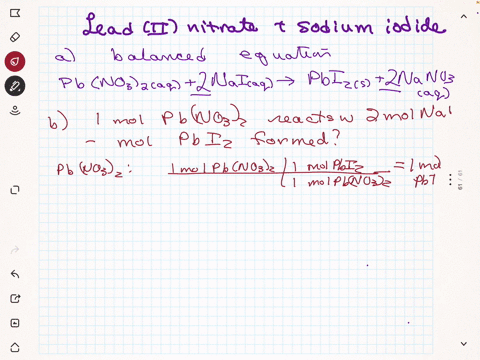 Lead (II) nitrate + sodium iodide
a) balanced equation
Pb(NO3)2(aq) + 2NaI(aq) → PbI2(s) + 2NaNO3
(aq)
b) 1 mol Pb(NO3)2 reacts w 2 mol NaI
- mol PbI2 formed?
Pb(NO3)2: 1 mol Pb(NO3)2 / 1 mol PbI2 = 1 mol
1 mol Pb(NO3)2 PbI